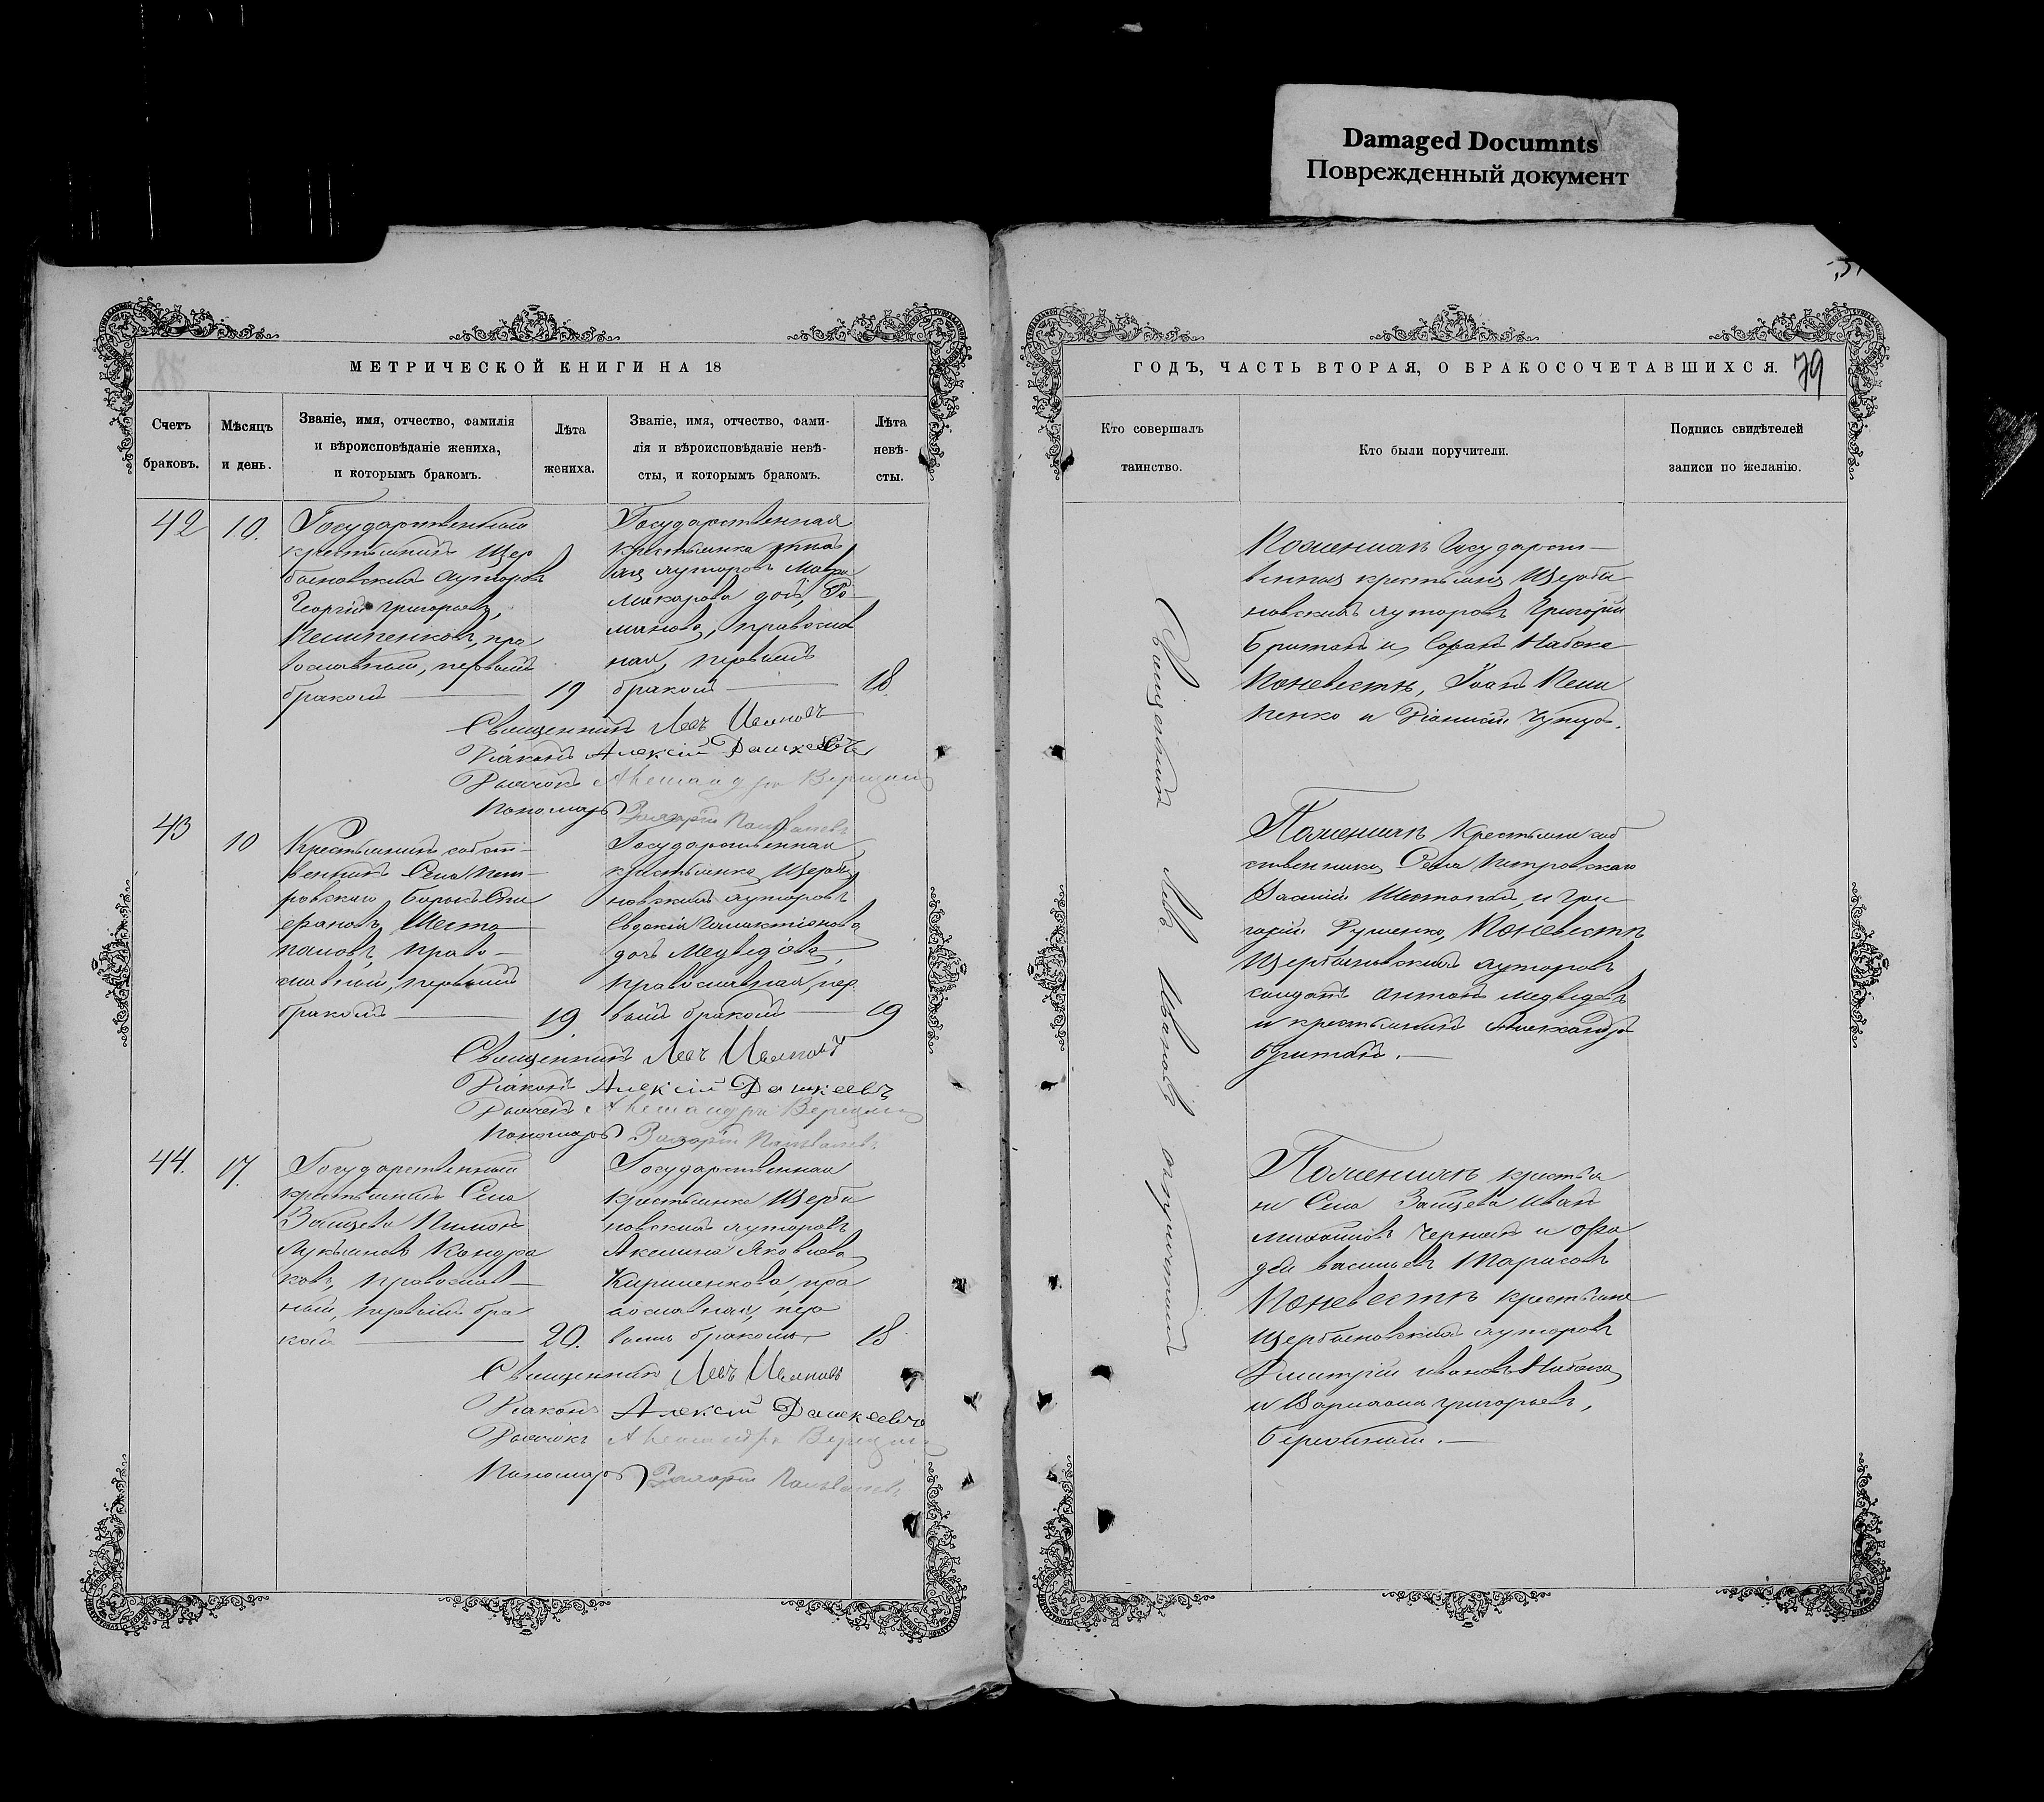 Damaged Documnts
Поврежденный документ
МЕТРИЧЕСКОЙ КНИГИ НА 18
Счетъ браковъ.
Мѣсяцъ и день.
Званіе, имя, отчество, фамилія
и вѣроисповѣданіе жениха,
и которымъ бракомъ.
Лѣта жениха.
Званіе, имя, отчество, фами-
лія и вѣроисповѣданіе невѣ-
сты, и которымъ бракомъ.
Лѣта
невѣ-
сты.
42
10.
Государственный
крестьянинъ Щер
биновскихъ хуторовъ
Георгій Григорьевъ,
Пелипенковъ, пра
вославный, первымъ
бракомъ
19
Государственная
крестьянка
хуторовъ
Макарова дочь, Ро-
манова, православ
ная, первымъ
бракомъ
18.
Священникъ Левъ Ивановъ
Діаконъ Алексій Дашкеевъ
Дьячокъ Александръ
Пономарь
43
10
Крестьянинъ собст-
венникъ Села Пет-
ровскаго
Шесто
паловъ, право-
славный, первымъ
бракомъ
19
Государственная
крестьянка Щерби
новскихъ хуторовъ
Евдокія
дочь Медведіева,
православная, пер
вымъ бракомъ
19
Священникъ Левъ Ивановъ
Діаконъ Алексій Дашкеевъ
Дьячокъ Александръ
Пономарь
44.
17.
Государственный
крестьянинъ Села
Зайцева Пименъ
Лукьяновъ Кондра
ковъ, православ-
ный, первымъ бра
комъ
20.
Государственная
крестьянка Щерби
новскихъ хуторовъ
Акелина Яковлева
Кириленкова, пра
вославная, пер
вымъ бракомъ
18
Священникъ Левъ Ивановъ
Діаконъ Алексій Дашкеевъ
Дьячокъ Александръ
Пономарь
ГОДЪ, ЧАСТЬ ВТОРАЯ, О БРАКОСОЧЕТАВШИХСЯ.
79
Кто совершалъ
таинство.
Кто были поручители.
Подпись свидѣтелей
записи по желанію.
Священникъ Левъ Ивановъ
По женихѣ Государст-
венныя крестьяне Щерби
новскихъ хуторовъ Григорій
Британъ и Софронъ Набока
По невестѣ, Іоанъ Пели
пенко и Діонисій
По женихѣ Крестьяне соб
ственники Села Петровскаго
Василій Шестопалъ, и Гри
горій Руденко, По невестѣ
Щербиновскихъ хуторовъ
солдатъ Антонъ Медведевъ
и крестьянинъ Александръ
Британъ.
По женихѣ крестья
не Села Зайцева Иванъ
Михайловъ Чернай и Фа
дей Васильевъ Тарасовъ
По невестѣ крестьяне
Щербиновскихъ хуторовъ
Димитрій Ивановъ Набока,
и Варламъ Григорьевъ,